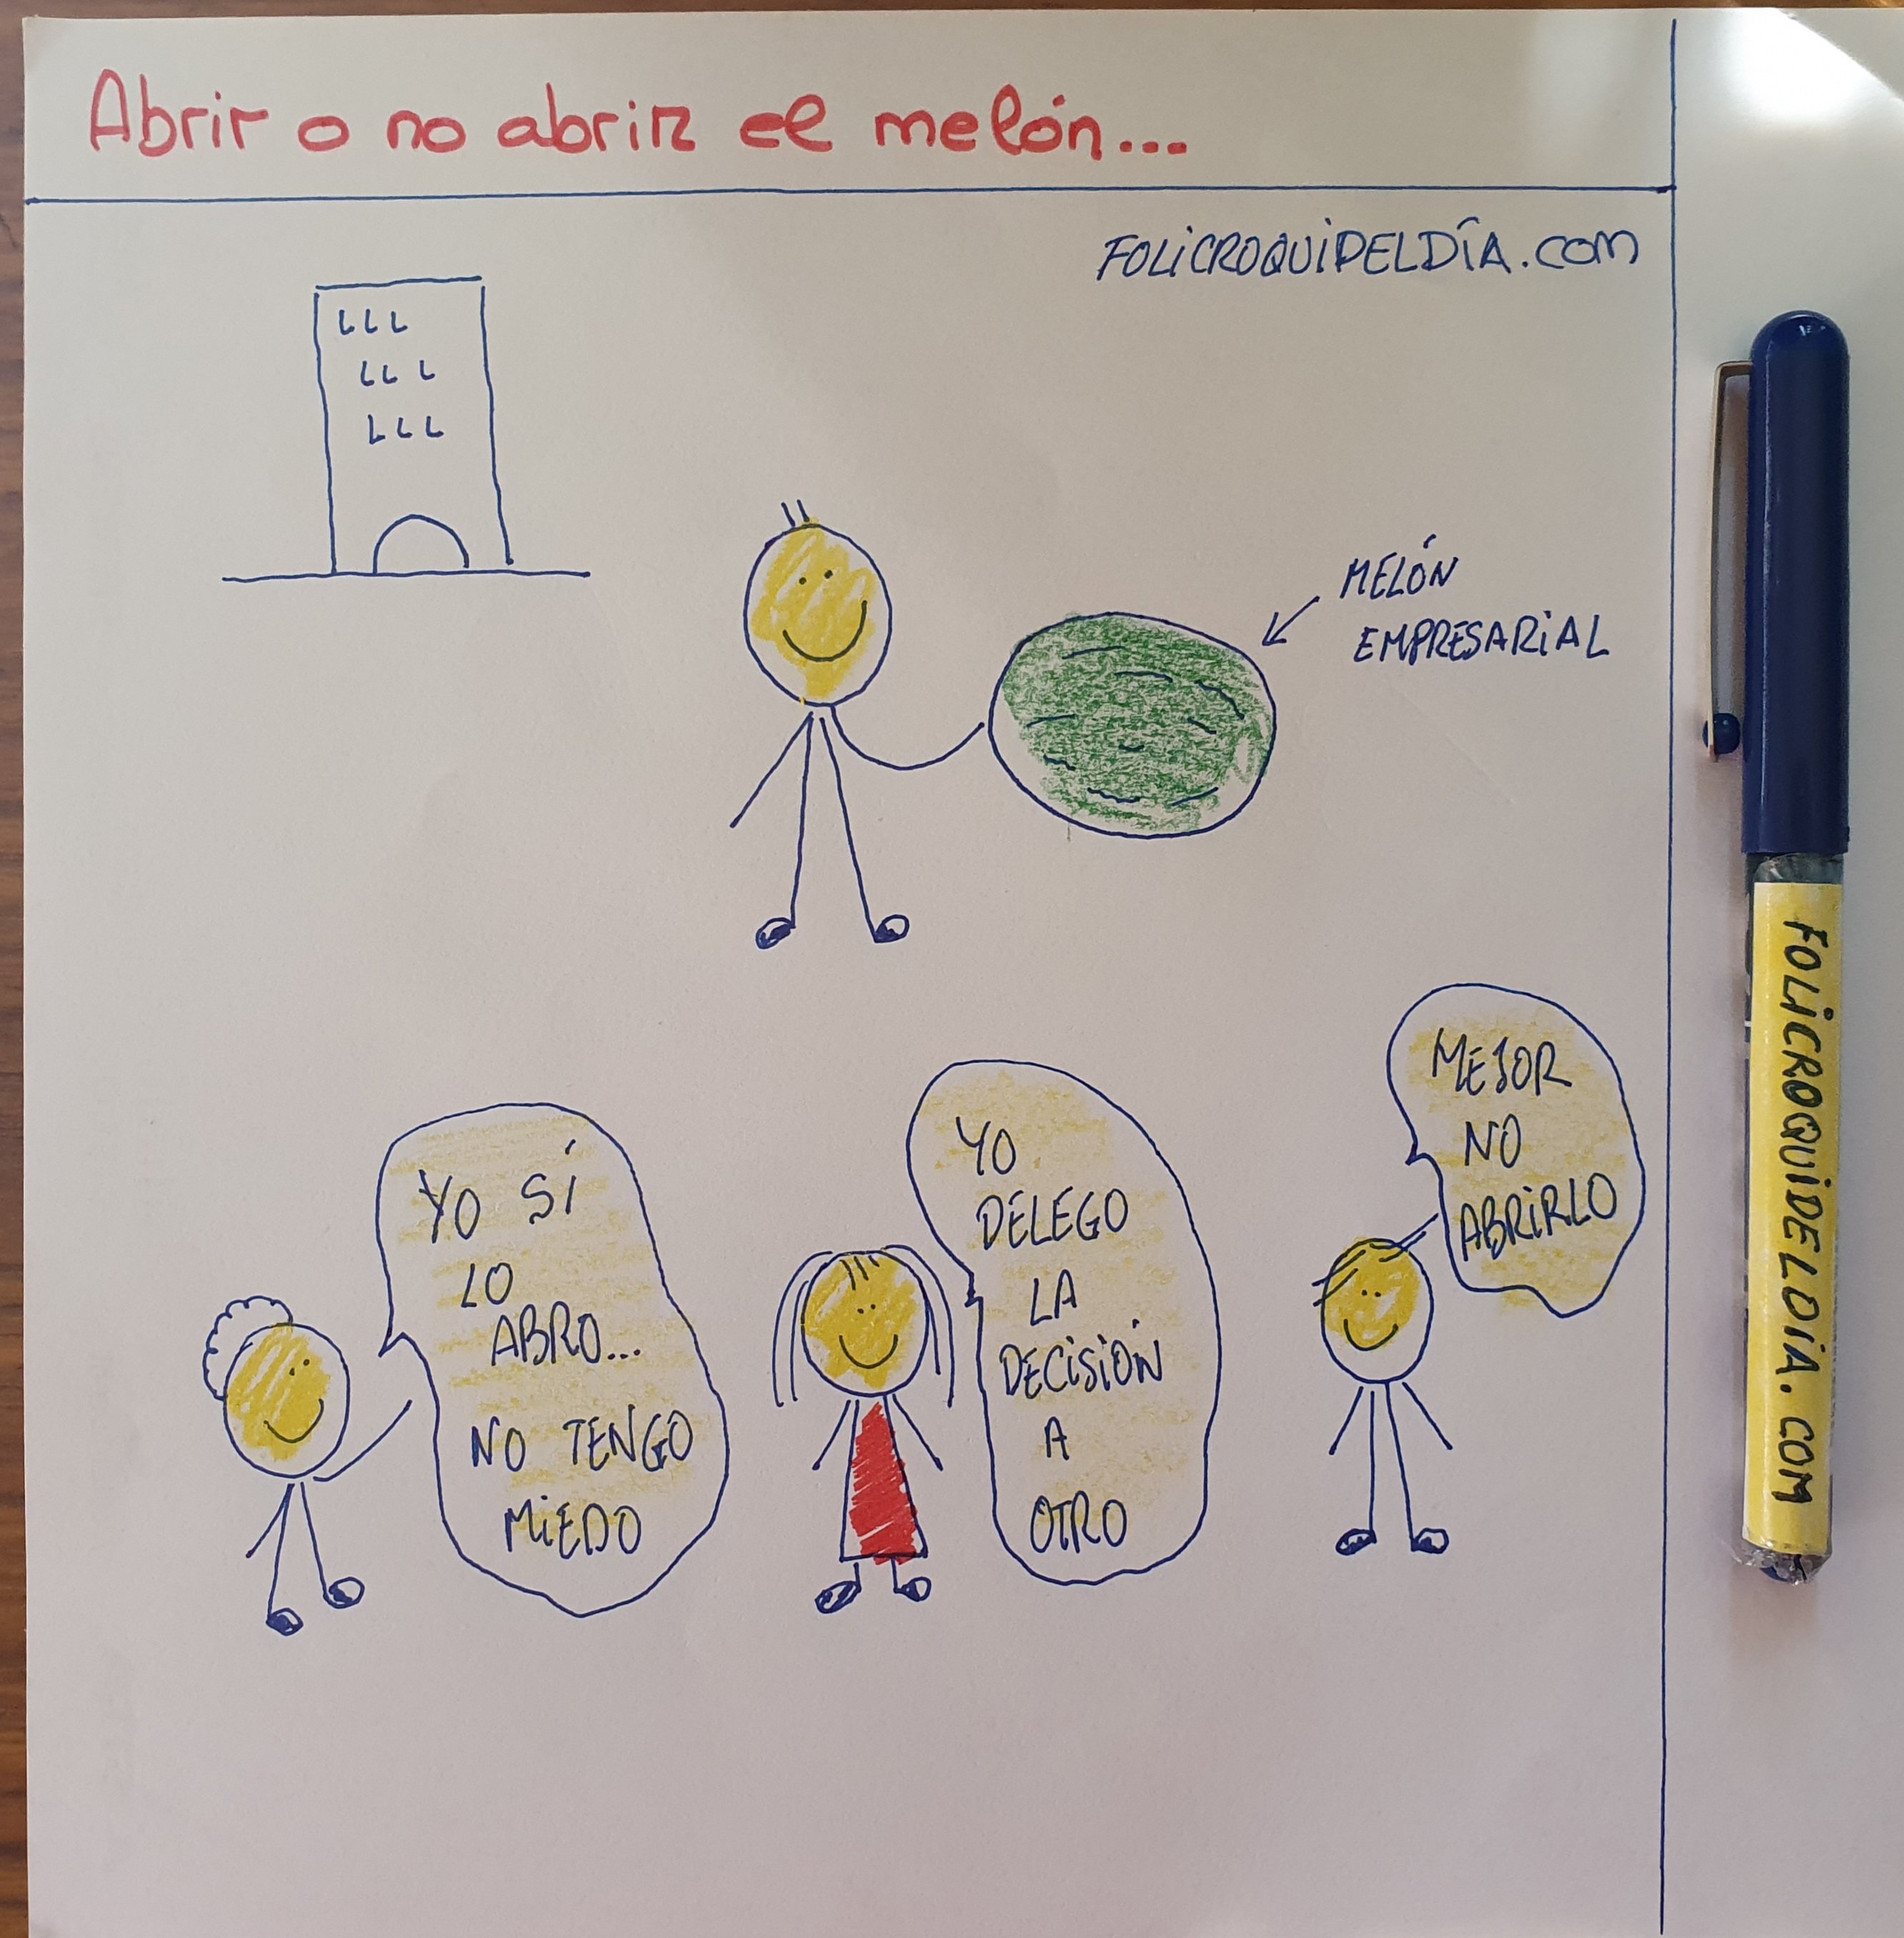 Abrir o no abrir el melón...
FOLICROQUIDELDÍA.COM
MELÓN
EMPRESARIAL
MEJOR
NO
ABRIRLO
YO
DELEGO
LA
DECISIÓN
A
OTRO
YO SÍ
LO
ABRO...
NO TENGO
MIEDO
FOLICROQUIDELDIA.COM